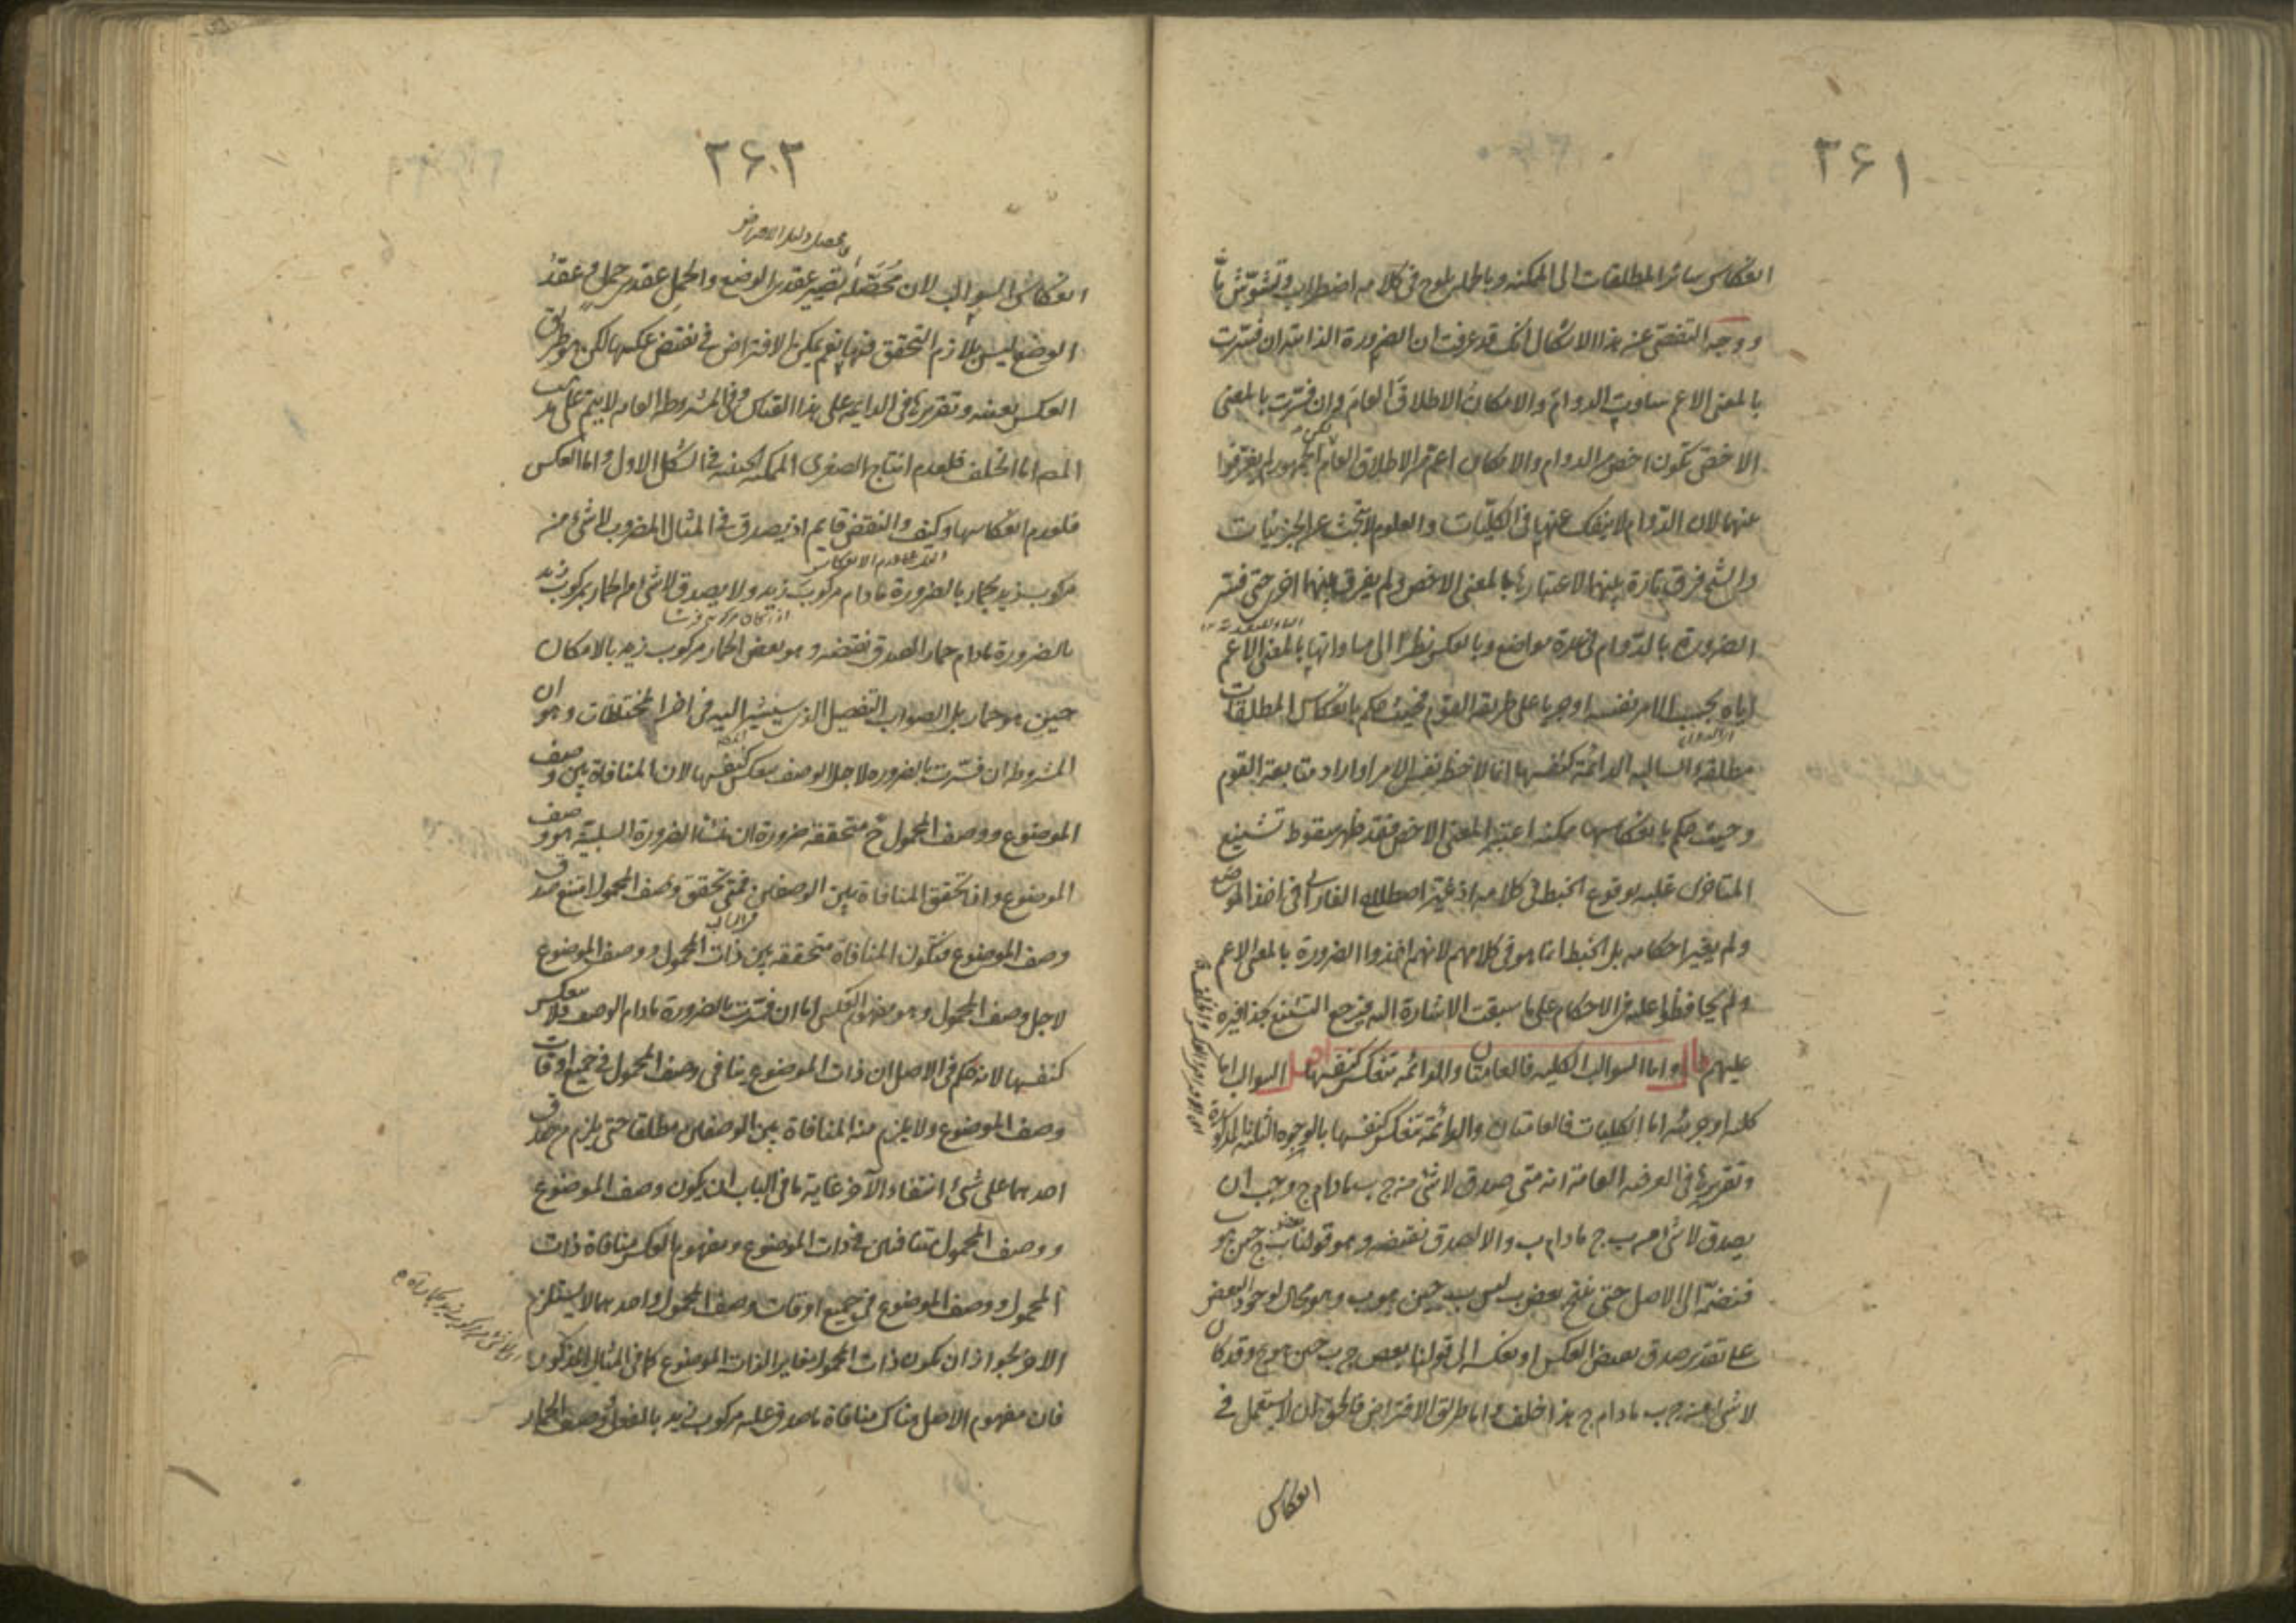 ٣۶١
انعكاس سائر المطلقات الى الممكنة وبالجملة يلوح فى كلامه اضطراب وتشوّش
ووجه التفصّى عنه هذا الاشكال انك قد عرفت ان الضرورة الذاتية ان فسّرت
بالمعنى الاعم ساوت الدوام والامكان الاطلاق العام وان فسّرت بالمعنى
الاخصّ تكون اخص من الدوام والامكان اعم من الاطلاق العام لكن الجمهور لم يفرقوا
بينهما لان الدّوام لا ينفك عنها فى الكليّات والعلوم لا تبحث عن الجزئيات
والشيخ فرق تارة بينهما لاعتباره بالمعنى الاخص ولم يفرق بينهما اخرى حتى فسّر
الضرورة بالدّوام فى عدة مواضع وبالعكس نظرًا الى مساواتها بالمعنى الاعم
اياه بحسب الامر نفسه او جريا على طريقة القوم فحيث حكم بانعكاس المطلقات
مطلقة والسالبة الدائمة كنفسها انما لاحظ نفس الامر او اراد متابعة القوم
وحيث حكم بانعكاسها ممكنة اعتبر المعنى الاخص فقد ظهر سقوط تشنيع
المتاخرين عليه بوقوع الخبط فى كلامه اذ غيّر اصطلاح الفارابى فى اخذ الموضوع
ولم يغير احكامه بل الخبط انما هو فى كلامهم لانهم اخذوا الضرورة بالمعنى الاعم
ولم يحافظوا عليه فى الاحكام على ما سبقت الاشارة اليه فيرجع التشنيع بحذافيره
عليهم قال واما السوالب الكلية فالعامتان والدائمة تنعكس كنفسها اقول السوالب اما
كلية او جزئية اما الكليات فالعامتان والدائمة تنعكس كنفسها بالوجوه الثلاثة المذكورة
وتقريرها فى العرفية العامة انه متى صدق لا شئ من ج ب مادام ج وجب ان
يصدق لا شئ من ب ج مادام ب والا لصدق نقيضه وهو قولنا بعض ب ج حين هو ب
فنضمّه الى الاصل حتى ينتج بعض ب ليس ب حين هو ب وهو محال لوجود البعض
على تقدير صدق بعض العكس او نعكسه الى قولنا بعض ج ب حين هو ج وقد كان
لا شئ من ج ب مادام ج هذا خلف واما طريق الافتراض فالحق ان لا يستعمل فى
انعكاس
٣۶٢
انعكاس السوالب لان محصّله تصيير عقدى الوضع والحمل عقدى حمل وعقد
الوضع ليس بلازم التحقق فيها نعم يمكن الافتراض فى نقيض عكسها لكن هو طريق
العكس بعينه وتقريرها فى الدائمة على هذا القياس وفى المشروطة العامة لا يتم على مذهب
المص اما الخلف فلعدم انتاج الصغرى الممكنة الحينية فى الشكل الاول واما العكس
فلعدم انعكاسها وكيف والنقض قايم اذ يصدق فى المثال المضروب لا شئ من
مركوب زيد بحمار بالضرورة مادام مركوب زيد ولا يصدق لا شئ من الحمار بمركوب زيد
بالضرورة مادام حمارا لصدق نقيضه وهو بعض الحمار مركوب زيد بالامكان
حين هو حمار بل الصواب التفصيل الذى سيشير اليه فى اخر المختلطات وهو ان
المشروطة ان فسّرت بالضرورة لاجل الوصف تنعكس كنفسها لان المنافاة بين وصف
الموضوع ووصف المحمول ح متحققة ضرورة ان منشأ الضرورة السلبية هو وصف
الموضوع واذا تحقق المنافاة بين الوصفين فمتى تحقق وصف المحمول امتنع صدق
وصف الموضوع فتكون المنافاة متحققة بين ذات المحمول ووصف الموضوع
لاجل وصف المحمول وهو مفهوم العكس اما ان فسّرت بالضرورة مادام الوصف فلا تنعكس
كنفسها لانه حكم فى الاصل ان ذات الموضوع ينافى وصف المحمول فى جميع اوقات
وصف الموضوع ولا يلزم منه المنافاة بين الوصفين مطلقا حتى يلزم من صدق
احدهما على شئ انتفاء الآخر غاية ما فى الباب ان يكون وصف الموضوع
ووصف المحمول متنافيين فى ذات الموضوع ومفهوم العكس منافاة ذات
المحمول ووصف الموضوع فى جميع اوقات وصف المحمول واحدهما لا يستلزم
الاخر لجواز ان يكون ذات المحمول مغايرا لذات الموضوع كما فى المثال المذكور
فان مفهوم الاصل هناك منافاة ما صدق عليه مركوب زيد بالفعل وصف الحمار